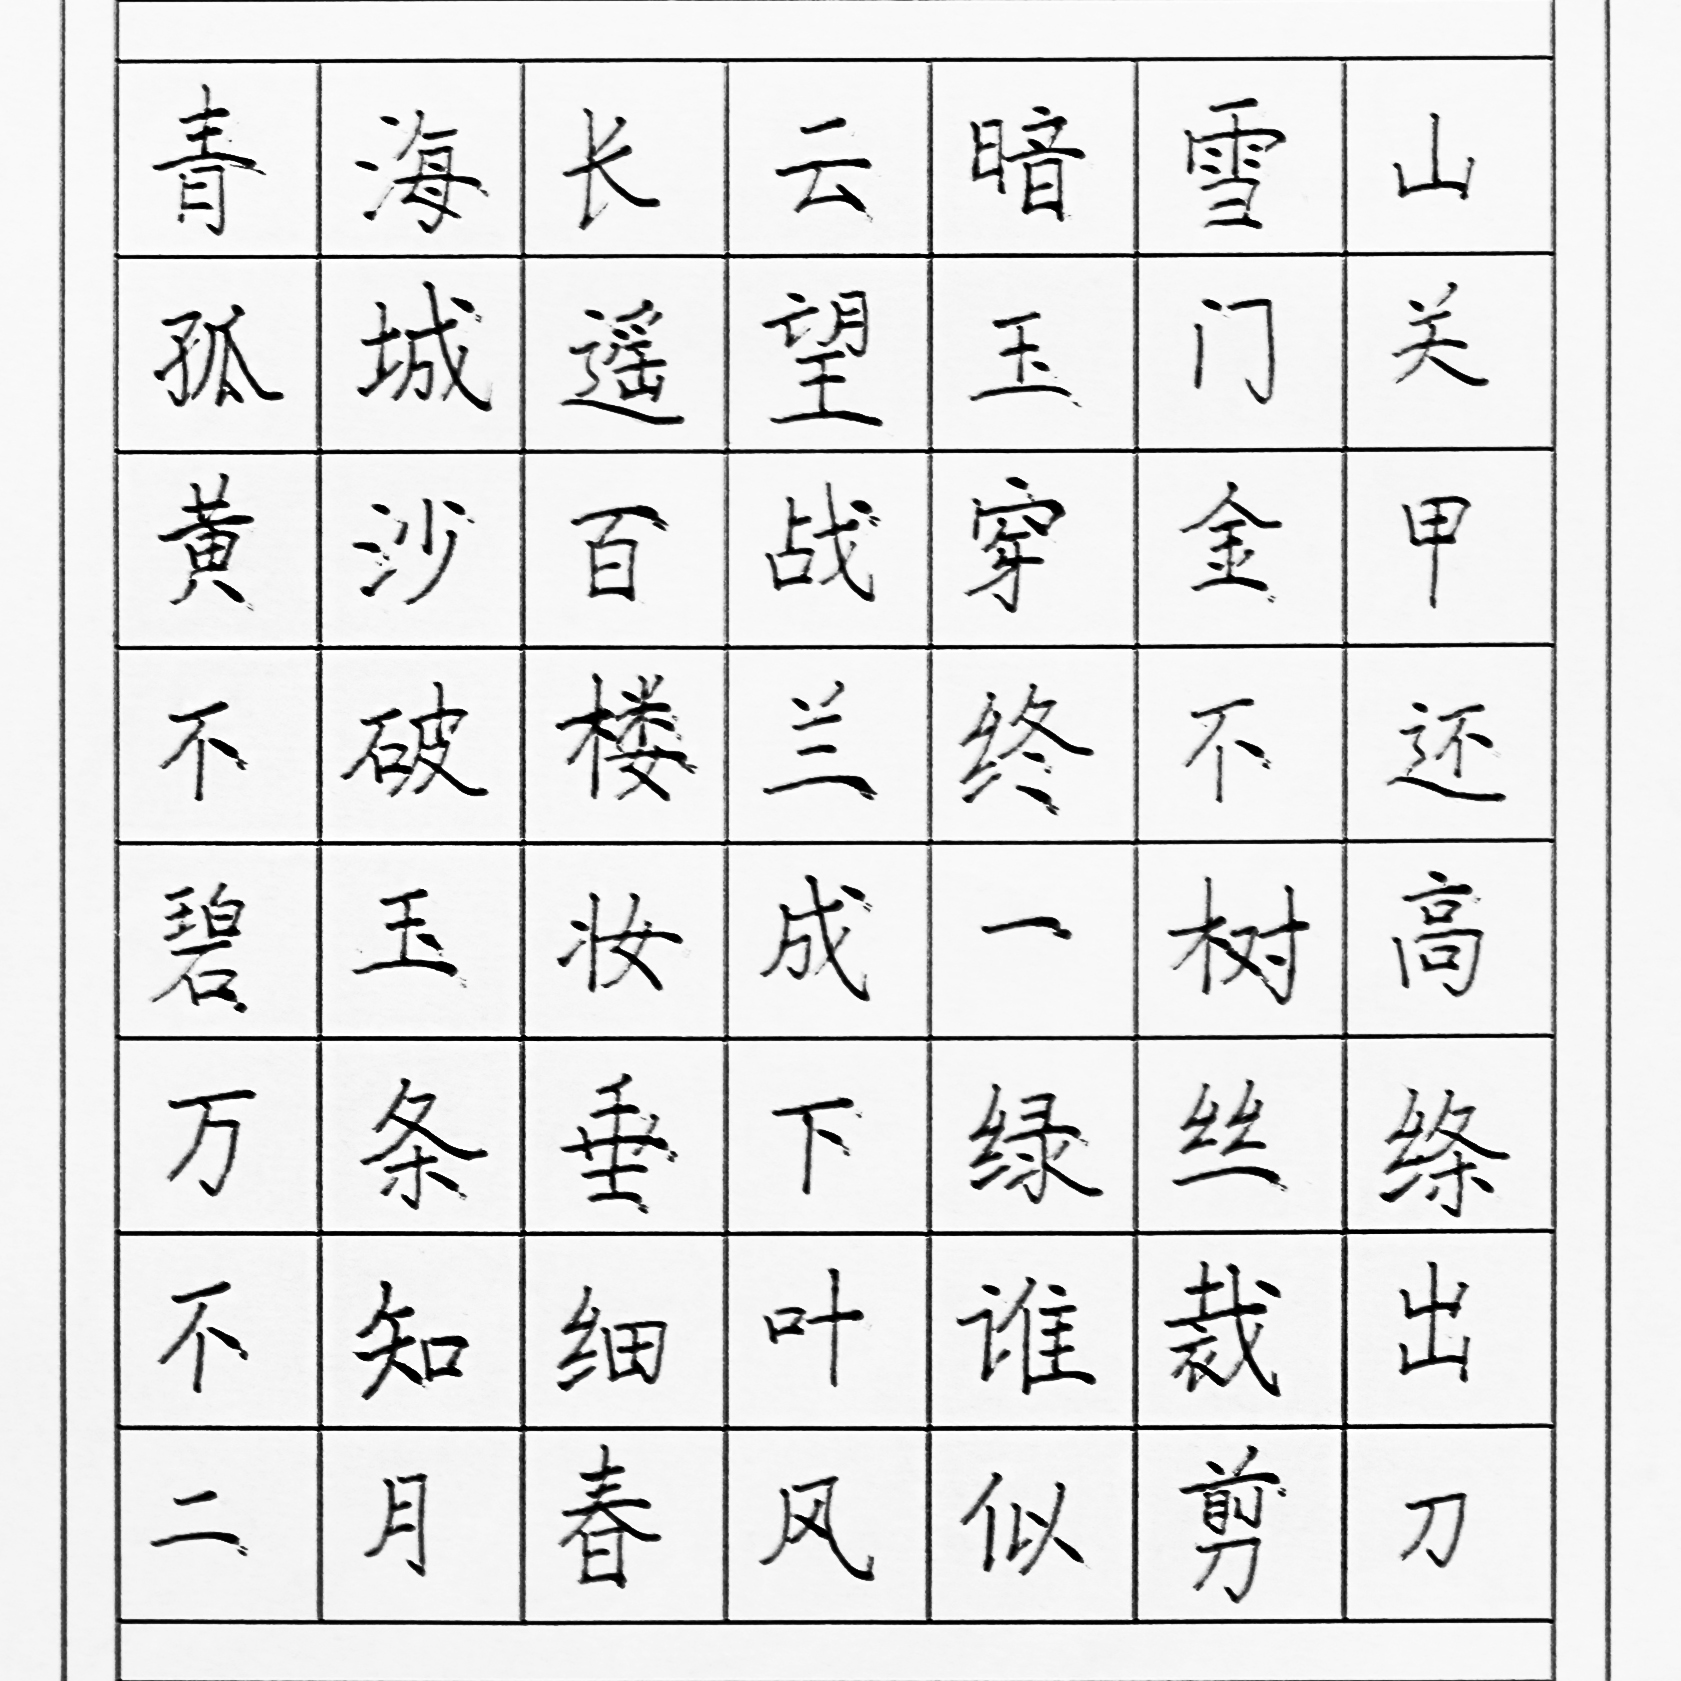 青海长云暗雪山
孤城遥望玉门关
黄沙百战穿金甲
不破楼兰终不还
碧玉妆成一树高
万条垂下绿丝绦
不知细叶谁裁出
二月春风似剪刀